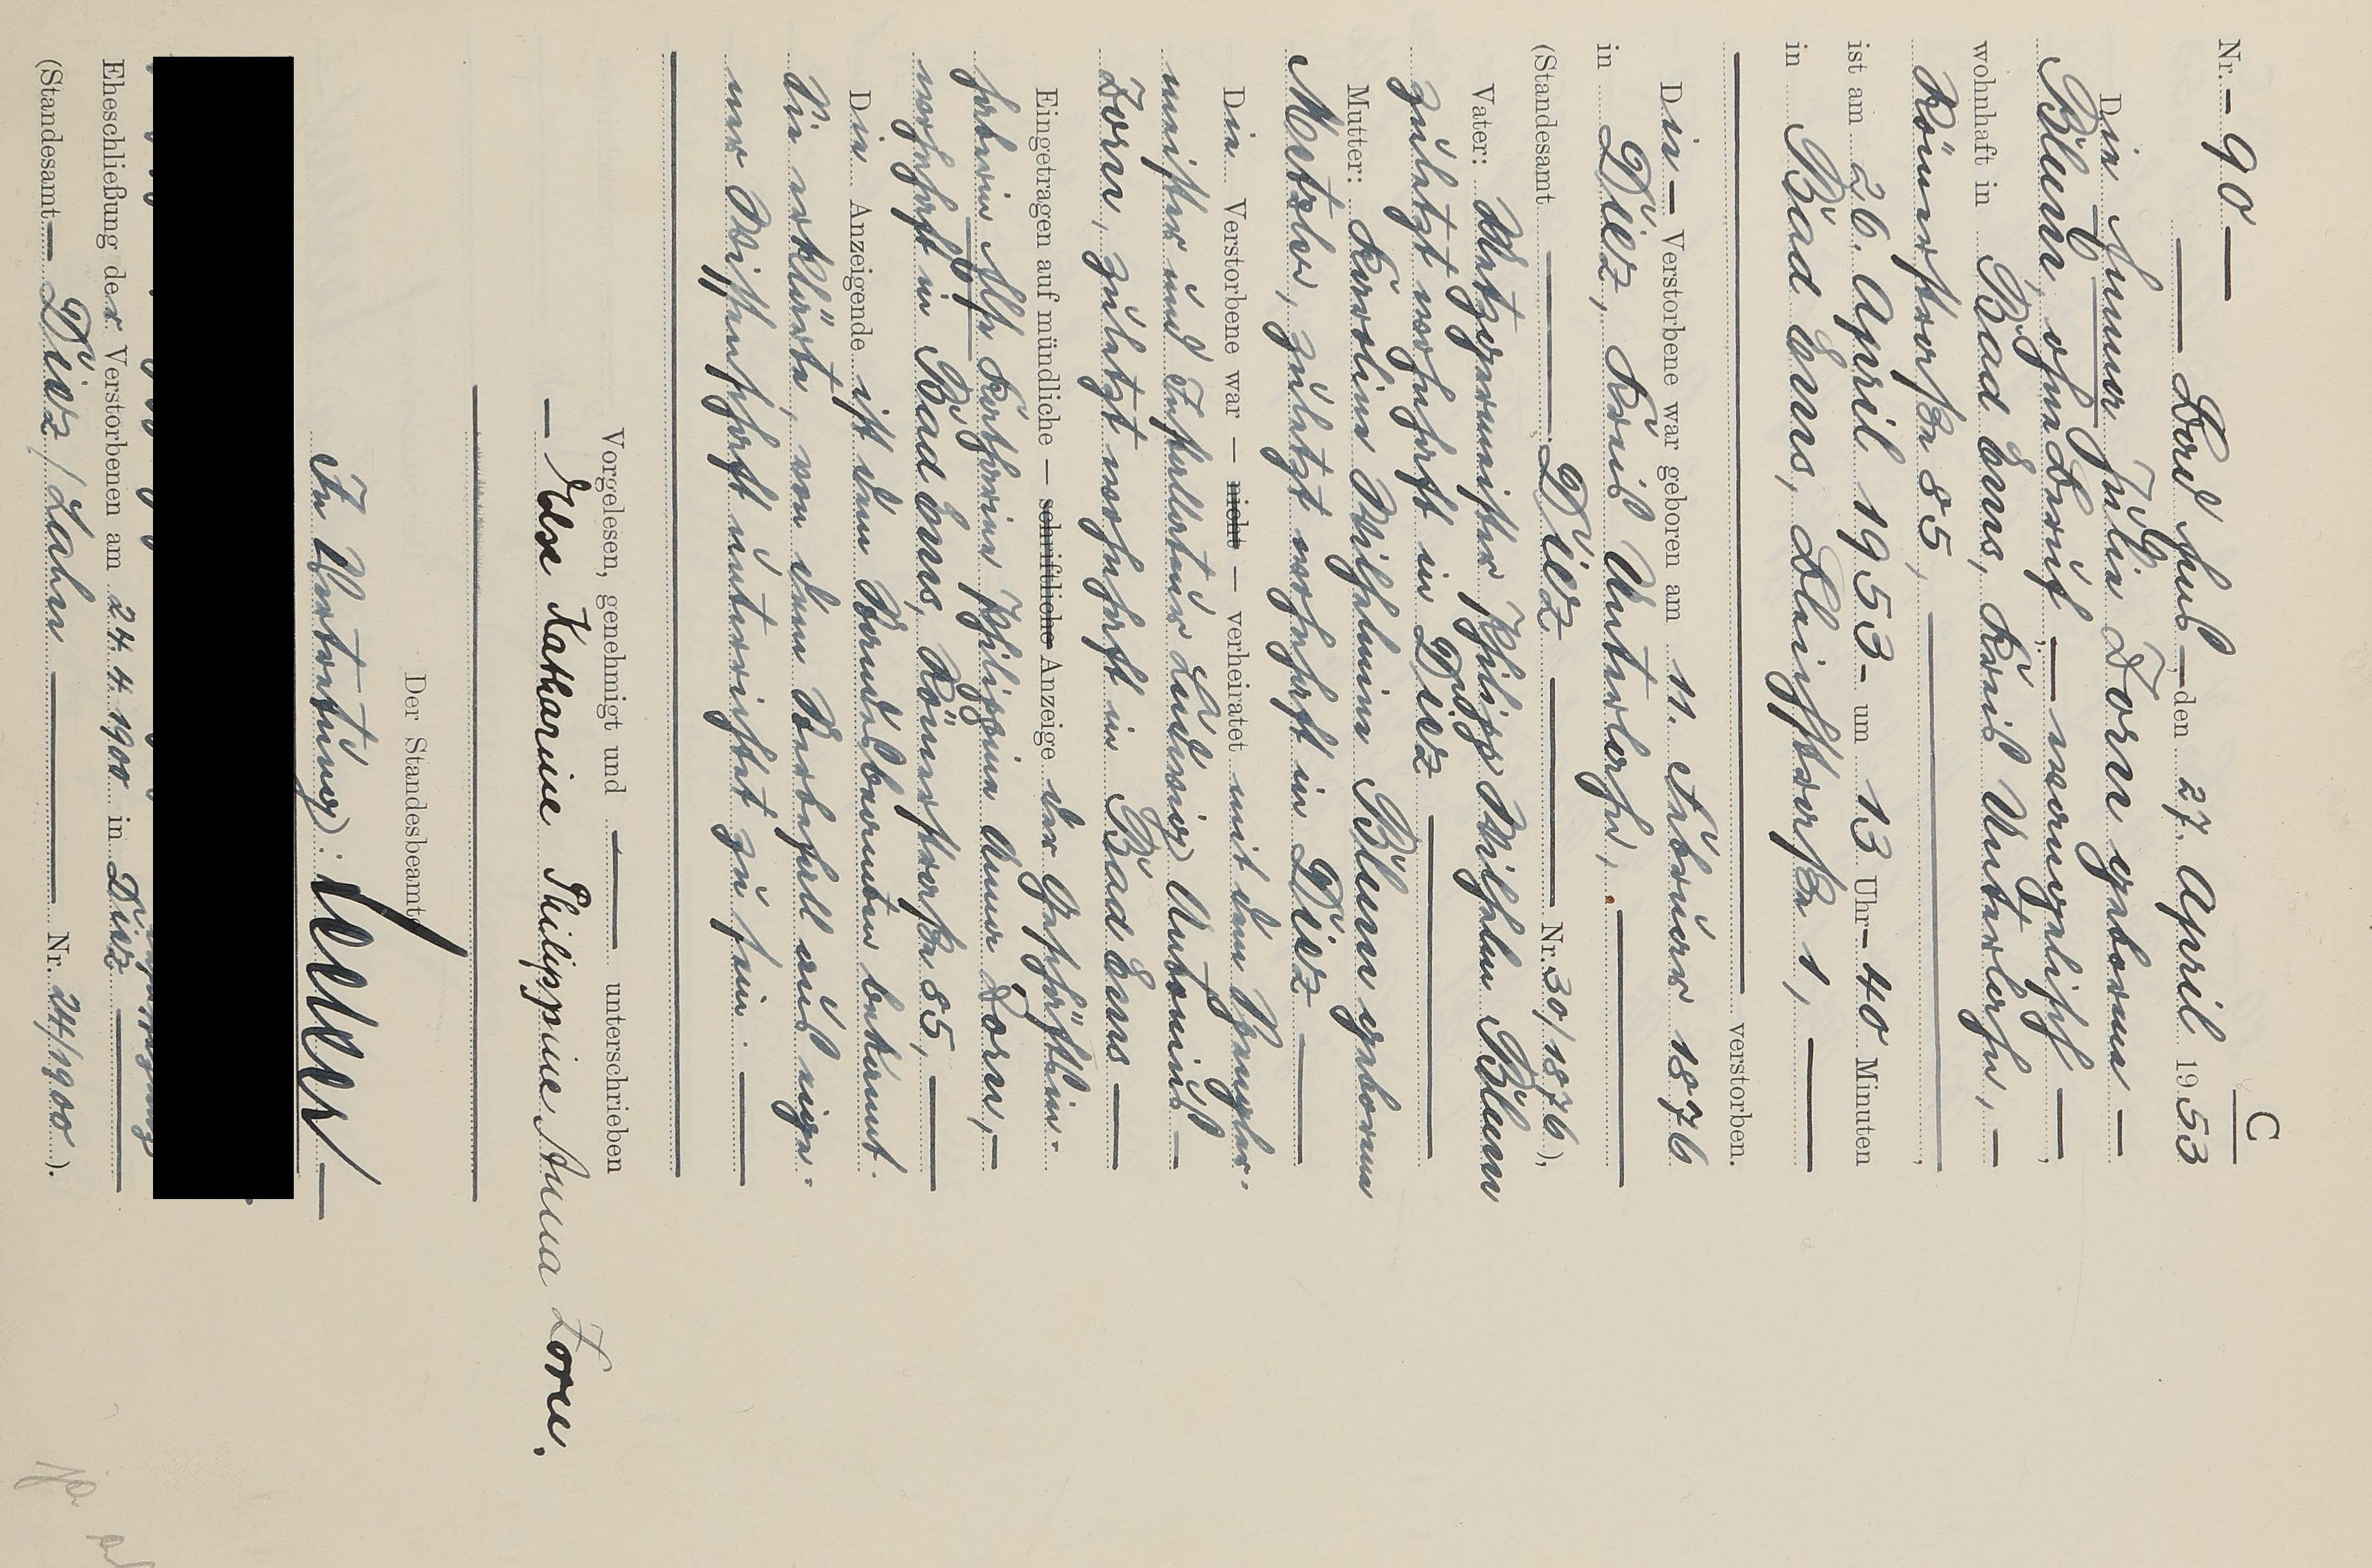 C
Nr. 90
Bad Ems, den 27. April 1953
Die Anna Julie Zorn geborene
Blum, ohne Beruf, evangelisch,
wohnhaft in Bad Ems, Kreis Unterlahn,
Römerstraße 85,
ist am 26. April 1953 um 13 Uhr 40 Minuten
in Bad Ems, Bleichstraße 1,
verstorben.
Die Verstorbene war geboren am 11. Februar 1876
in Diez, Kreis Unterlahn,
(Standesamt Diez Nr. 30/1876),
Vater: Metzgermeister Philipp Wilhelm Blum
zuletzt wohnhaft in Diez
Mutter: Karoline Wilhelmine Blum geborene
Metzler, zuletzt wohnhaft in Diez
Die Verstorbene war — nicht — verheiratet mit dem Spengler-
meister und Installateur Ludwig Antonius
Zorn, zuletzt wohnhaft in Bad Ems
Eingetragen auf mündliche — schriftliche Anzeige der Geschäftsin-
haberin Else Katharine Philippine Anna Zorn,
wohnhaft in Bad Ems, Römerstraße 85,
Die Anzeigende ist dem Standesbeamten bekannt.
Sie erklärte, von dem Sterbefall aus eige-
ner Wissenschaft unterrichtet zu sein.
Vorgelesen, genehmigt und unterschrieben
Else Katharine Philippine Anna Zorn.
Der Standesbeamte
In Vertretung:
Eheschließung der Verstorbenen am 24.4.1900 in Diez
(Standesamt Diez/Lahn Nr. 24/1900).